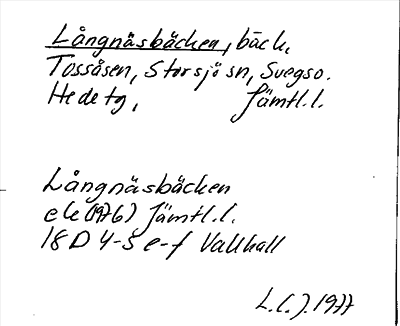 Långnäsbäcken, bäck,
Tossåsen, Storsjö sn, Svegs o.
Hede tg, Jämtl.l.
Långnäsbäcken
ek (1976) Jämtl.l.
18 D 4-5 e-f Vallhall
L.C.J. 1977